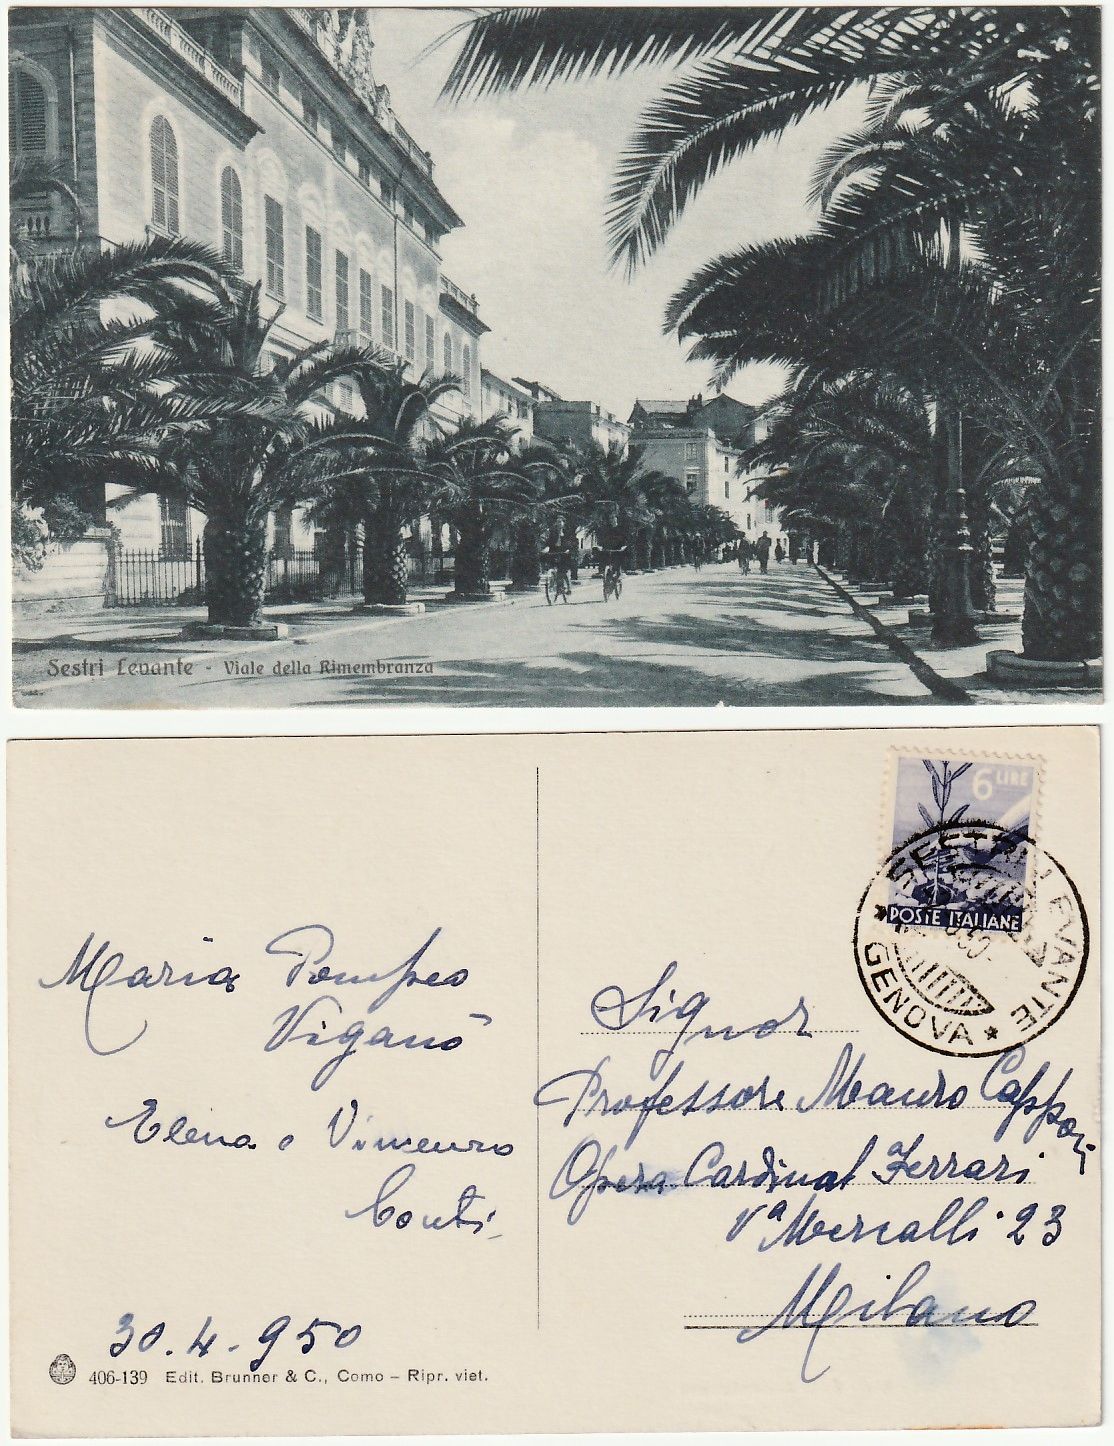 Sestri Levante - Viale della Rimembranza
6 LIRE
POSTE ITALIANE
SESTRI LEVANTE
950
* GENOVA *
Maria Pompeo
Viganò
Elena e Vincenzo
Conti
30.4.950
Signor
Professore Mauro Cappon
Opera Cardinal Ferrari
Vª Mercalli 23
Milano
406-139 Edit. Brunner & C., Como – Ripr. viet.